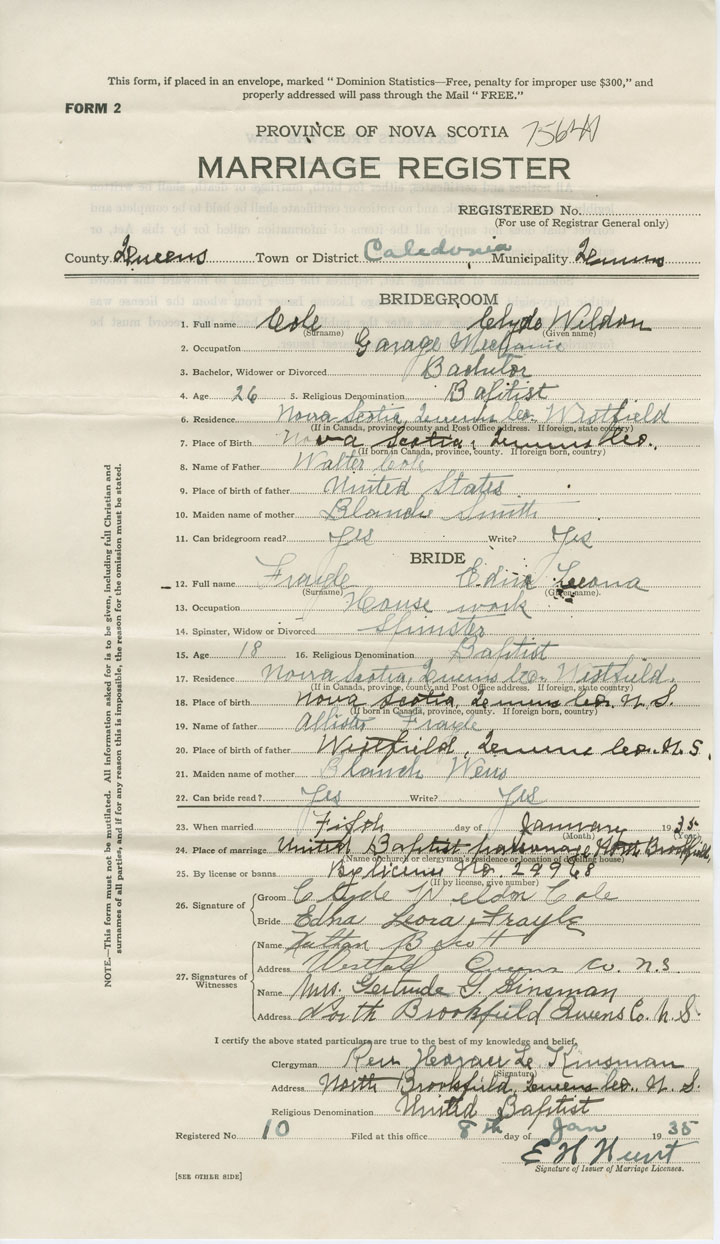 This form, if placed in an envelope, marked "Dominion Statistics—Free, penalty for improper use $300," and
properly addressed will pass through the Mail "FREE."
FORM 2
PROVINCE OF NOVA SCOTIA
MARRIAGE REGISTER
REGISTERED No.
(For use of Registrar General only)
County Queens Town or District Caledonia Municipality Queens
BRIDEGROOM
1. Full name Cole Clyde Weldon
(Surname) (Given name)
2. Occupation Garage Mechanic
3. Bachelor, Widower or Divorced Bachelor
4. Age 26 5. Religious Denomination Baptist
6. Residence Nova Scotia, Queens Co. Westfield
(If in Canada, province, county and Post Office address. If foreign, state country)
7. Place of Birth Nova Scotia, Queens Co.
(If born in Canada, province, county. If foreign born, country)
8. Name of Father Walter Cole
9. Place of birth of father United States
10. Maiden name of mother Blanche Smith
11. Can bridegroom read? Yes Write? Yes
BRIDE
12. Full name Frayle Edna Leona
(Surname) (Given name)
13. Occupation House work
14. Spinster, Widow or Divorced Spinster
15. Age 18 16. Religious Denomination Baptist
17. Residence Nova Scotia, Queens Co. Westfield.
(If in Canada, province, county, and Post Office address. If foreign, state country)
18. Place of birth Nova Scotia, Queens Co. N. S.
(If born in Canada, province, county. If foreign born, country)
19. Name of father Allister Frayle
20. Place of birth of father Westfield, Queens Co. N. S.
21. Maiden name of mother Blanch
22. Can bride read? Yes Write? Yes
23. When married Fifth day of January 1935
(Month) (Year)
24. Place of marriage United Baptist parsonage, North Brookfield,
(Name of church or clergyman's residence or location of dwelling house)
25. By license or banns By license No. 24968
(If by license, give number)
26. Signature of Groom Clyde Weldon Cole
Bride Edna Leora Frayle
27. Signatures of Witnesses Name Nathan B Scott
Address Westfield Queens Co. N.S.
Name Mrs. Gertrude G. Kinsman
Address North Brookfield Queens C. N. S.
I certify the above stated particulars are true to the best of my knowledge and belief.
Clergyman Rev. Horace Le Kinsman
(Signature)
Address North Brookfield, Queens Co. N. S.
Religious Denomination United Baptist
Registered No. 10 Filed at this office 8th day of Jan 1935
E H Hunt
Signature of Issuer of Marriage Licenses.
[SEE OTHER SIDE]
NOTE.—This form must not be mutilated. All information asked for is to be given, including full Christian and
surnames of all parties, and if for any reason this is impossible, the reason for the omission must be stated.